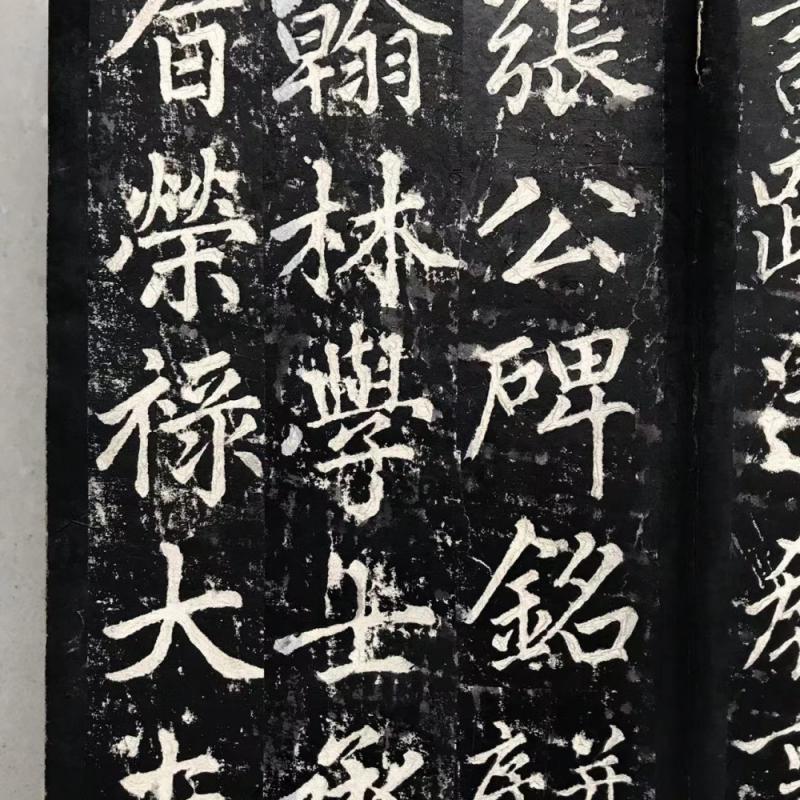 張公碑銘并序
翰林學士承
旨榮祿大夫